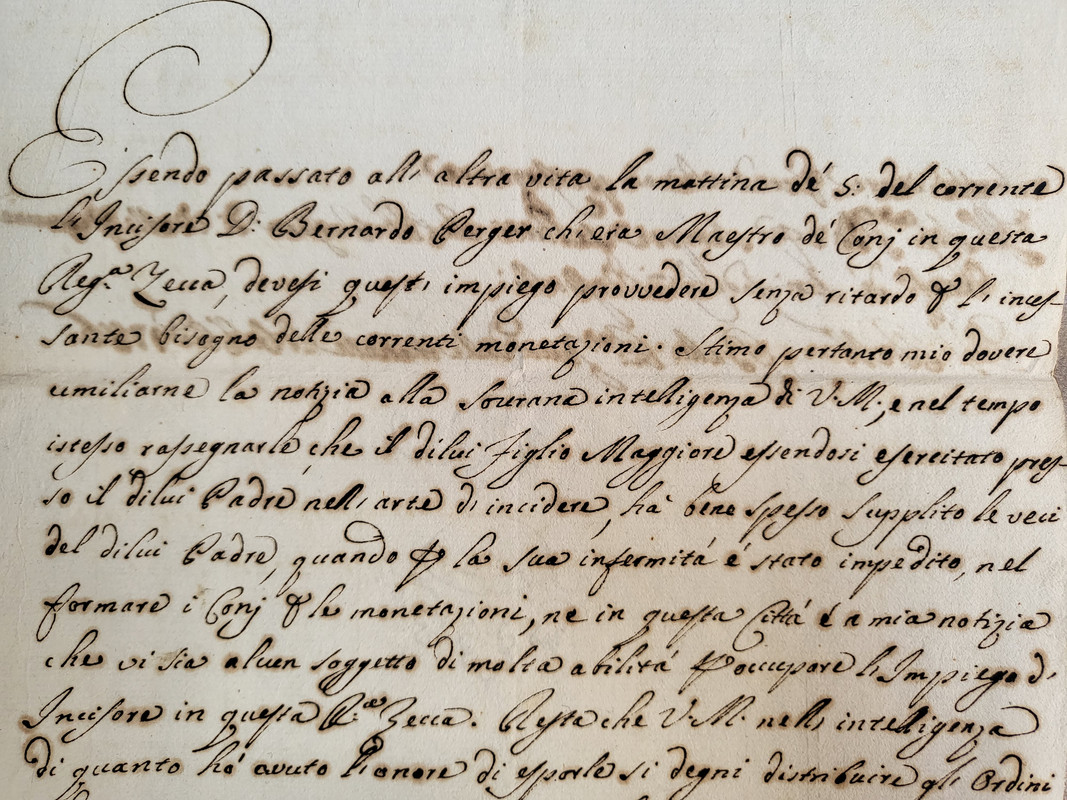 Essendo passato all'altra vita la mattina dé 5: del corrente
l'Incisore D: Bernardo Perger ch'era Maestro dé Conj in questa
Reg.ª Zecca, devesi quest'impiego provvedere senza ritardo ꝑ l'inces-
sante bisogno delle correnti monetazioni. Stimo pertanto mio dovere
umiliarne la notizia alla Sourana intelligenza di V.M., e nel tempo
istesso rassegnarle che il dilui figlio Maggiore essendosi esercitato pres-
so il dilui Padre nell'arte d'incidere, há bene spesso supplito le veci
del dilui Padre, quando ꝑ la sua infermitá é stato impedito, nel
formare i Conj ꝑ le monetazioni, ne in questa Cittá é a mia notizia
che vi sia alcun soggetto di molta abilitá ꝑ occupare l'Impiego d'
Incisore in questa R.ª Zecca. Resta che V.M. nell'intelligenza
di quanto hó avuto l'onore di esporle si degni distribuire gl'Ordini